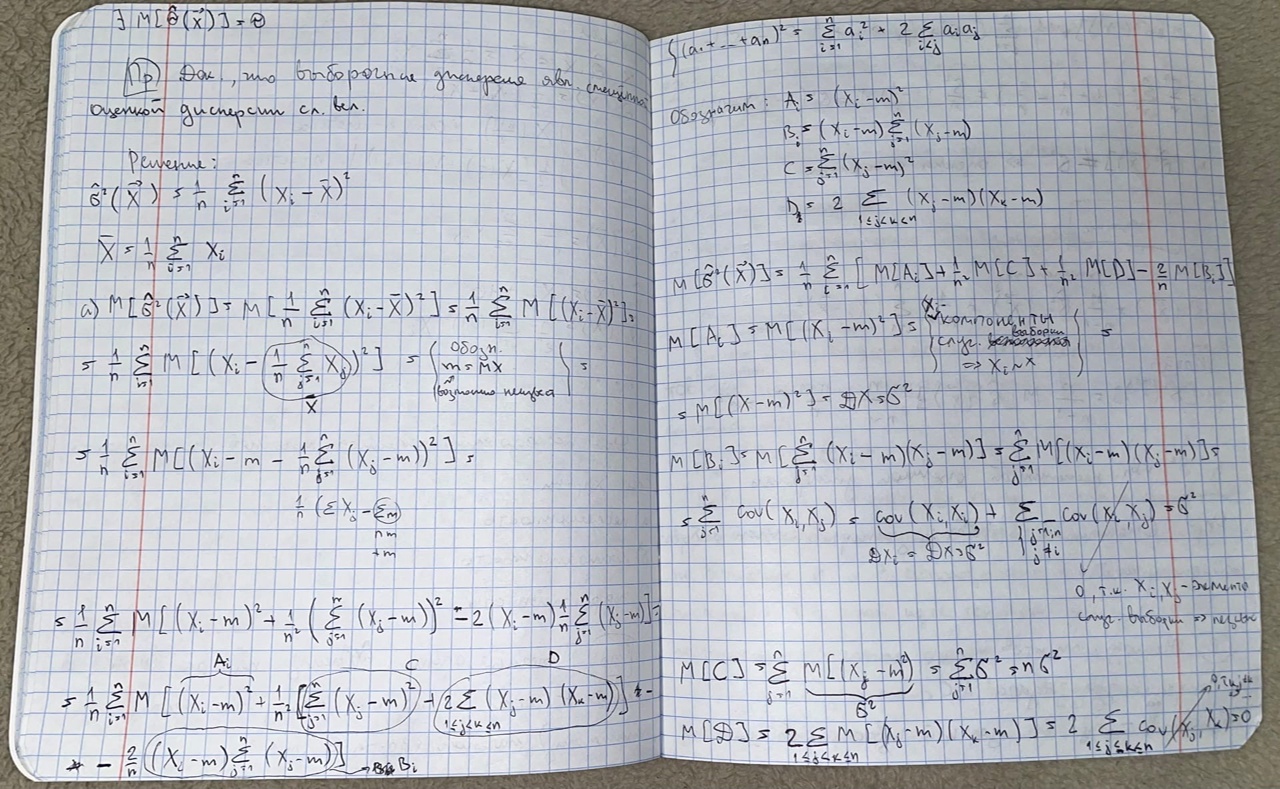 ∃ M[θ̂(X⃗)] = θ
Пр Док., что выборочная дисперсия явл. смещённой
оценкой дисперсии сл. вел.
Решение:
σ̂²(X⃗) = 1/n Σ_{i=1}^{n} (X_i − X̄)²
X̄ = 1/n Σ_{i=1}^{n} X_i
а) M[σ̂²(X⃗)] = M[1/n Σ_{i=1}^{n} (X_i − X̄)²] = 1/n Σ_{i=1}^{n} M[(X_i − X̄)²] =
= 1/n Σ_{i=1}^{n} M[(X_i − (1/n Σ_{j=1}^{n} X_j))²] = { Обозн. m = MX } =
X̄
= 1/n Σ_{i=1}^{n} M[(X_i − m − 1/n Σ_{j=1}^{n} (X_j − m))²] =
1/n (Σ X_j − Σm)
nm
+m
= 1/n Σ_{i=1}^{n} M[(X_i − m)² + 1/n² (Σ_{j=1}^{n} (X_j − m))² − 2(X_i − m) 1/n Σ_{j=1}^{n} (X_j − m)] =
A_i C D
= 1/n Σ_{i=1}^{n} M[(X_i − m)² + 1/n² [Σ_{j=1}^{n} (X_j − m)² + 2 Σ_{1≤j<k≤n} (X_j − m)(X_k − m)] −
− 2/n (X_i − m) Σ_{j=1}^{n} (X_j − m)] → B_i
{ (a₁ + ... + aₙ)² = Σ_{i=1}^{n} a_i² + 2 Σ_{i<j} a_i a_j
Обозначим: A_i = (X_i − m)²
B_i = (X_i − m) Σ_{j=1}^{n} (X_j − m)
C = Σ_{j=1}^{n} (X_j − m)²
D = 2 Σ_{1≤j<k≤n} (X_j − m)(X_k − m)
M[σ̂²(X⃗)] = 1/n Σ_{i=1}^{n} [M[A_i] + 1/n² M[C] + 1/n² M[D] − 2/n M[B_i]]
M[A_i] = M[(X_i − m)²] = { X_i – компоненты случ. выборки ⇒ X_i ~ X } =
= M[(X − m)²] = DX = σ²
M[B_i] = M[Σ_{j=1}^{n} (X_i − m)(X_j − m)] = Σ_{j=1}^{n} M[(X_i − m)(X_j − m)] =
= Σ_{j=1}^{n} cov(X_i, X_j) = cov(X_i, X_i) + Σ_{j=1;n, j≠i} cov(X_i, X_j) = σ²
DX_i = DX = σ²
0, т.к. X_i, X_j – элементы
случ. выборки ⇒
M[C] = Σ_{j=1}^{n} M[(X_j − m)²] = Σ_{j=1}^{n} σ² = nσ²
σ²
M[D] = 2 Σ_{1≤j<k≤n} M[(X_j − m)(X_k − m)] = 2 Σ_{1≤j≤k≤n} cov(X_j, X_k) = 0